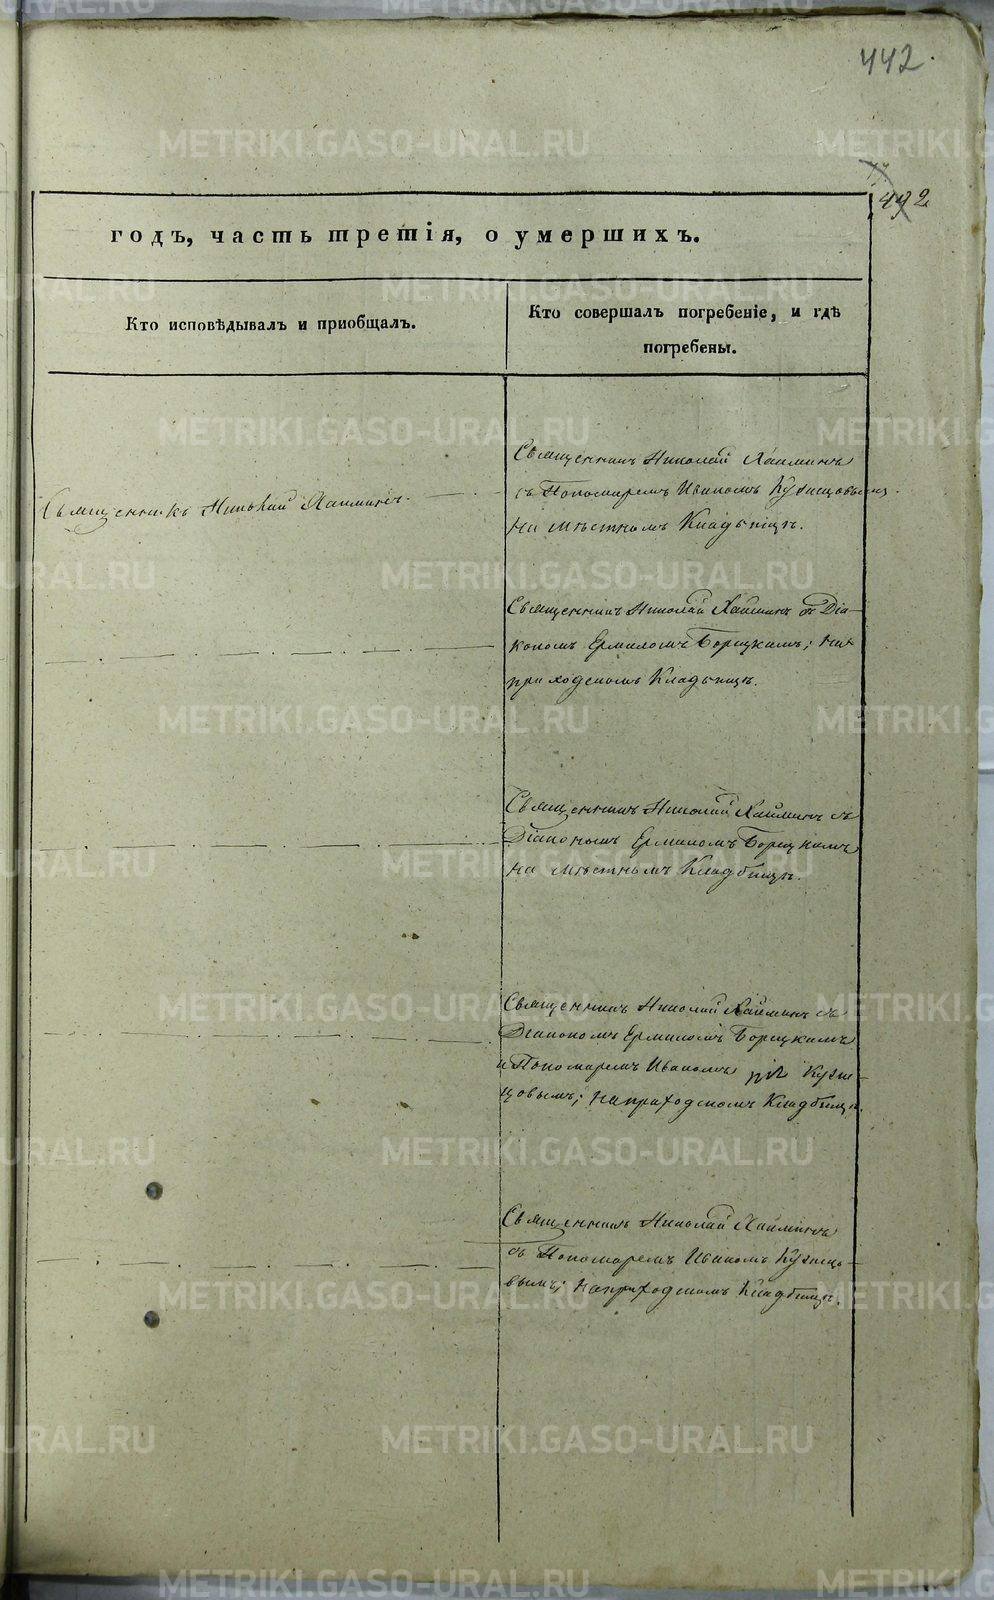 442.
442
годъ, часть третія, о умершихъ.
Кто исповѣдывалъ и приобщалъ.
Кто совершалъ погребеніе, и гдѣ
погребены.
Священникъ Николай Хаминъ
съ Пономаремъ Иваномъ Кузнецовымъ
на мѣстномъ Кладбищѣ.
Священникъ Николай Хаминъ.
Священникъ Николай Хаминъ съ Діа-
кономъ Ермиломъ Борецкимъ; на
приходскомъ Кладбищѣ.
Священникъ Николай Хаминъ съ
Діакономъ Ермиломъ Борецкимъ
на мѣстномъ Кладбищѣ.
Священникъ Николай Хаминъ съ
Діакономъ Ермиломъ Борецкимъ
и Пономаремъ Иваномъ Кузне-
цовымъ; на приходскомъ Кладбищѣ.
Священникъ Николай Хаминъ
съ Пономаремъ Иваномъ Кузнецо-
вымъ; на приходскомъ Кладбищѣ.
METRIKI.GASO-URAL.RU